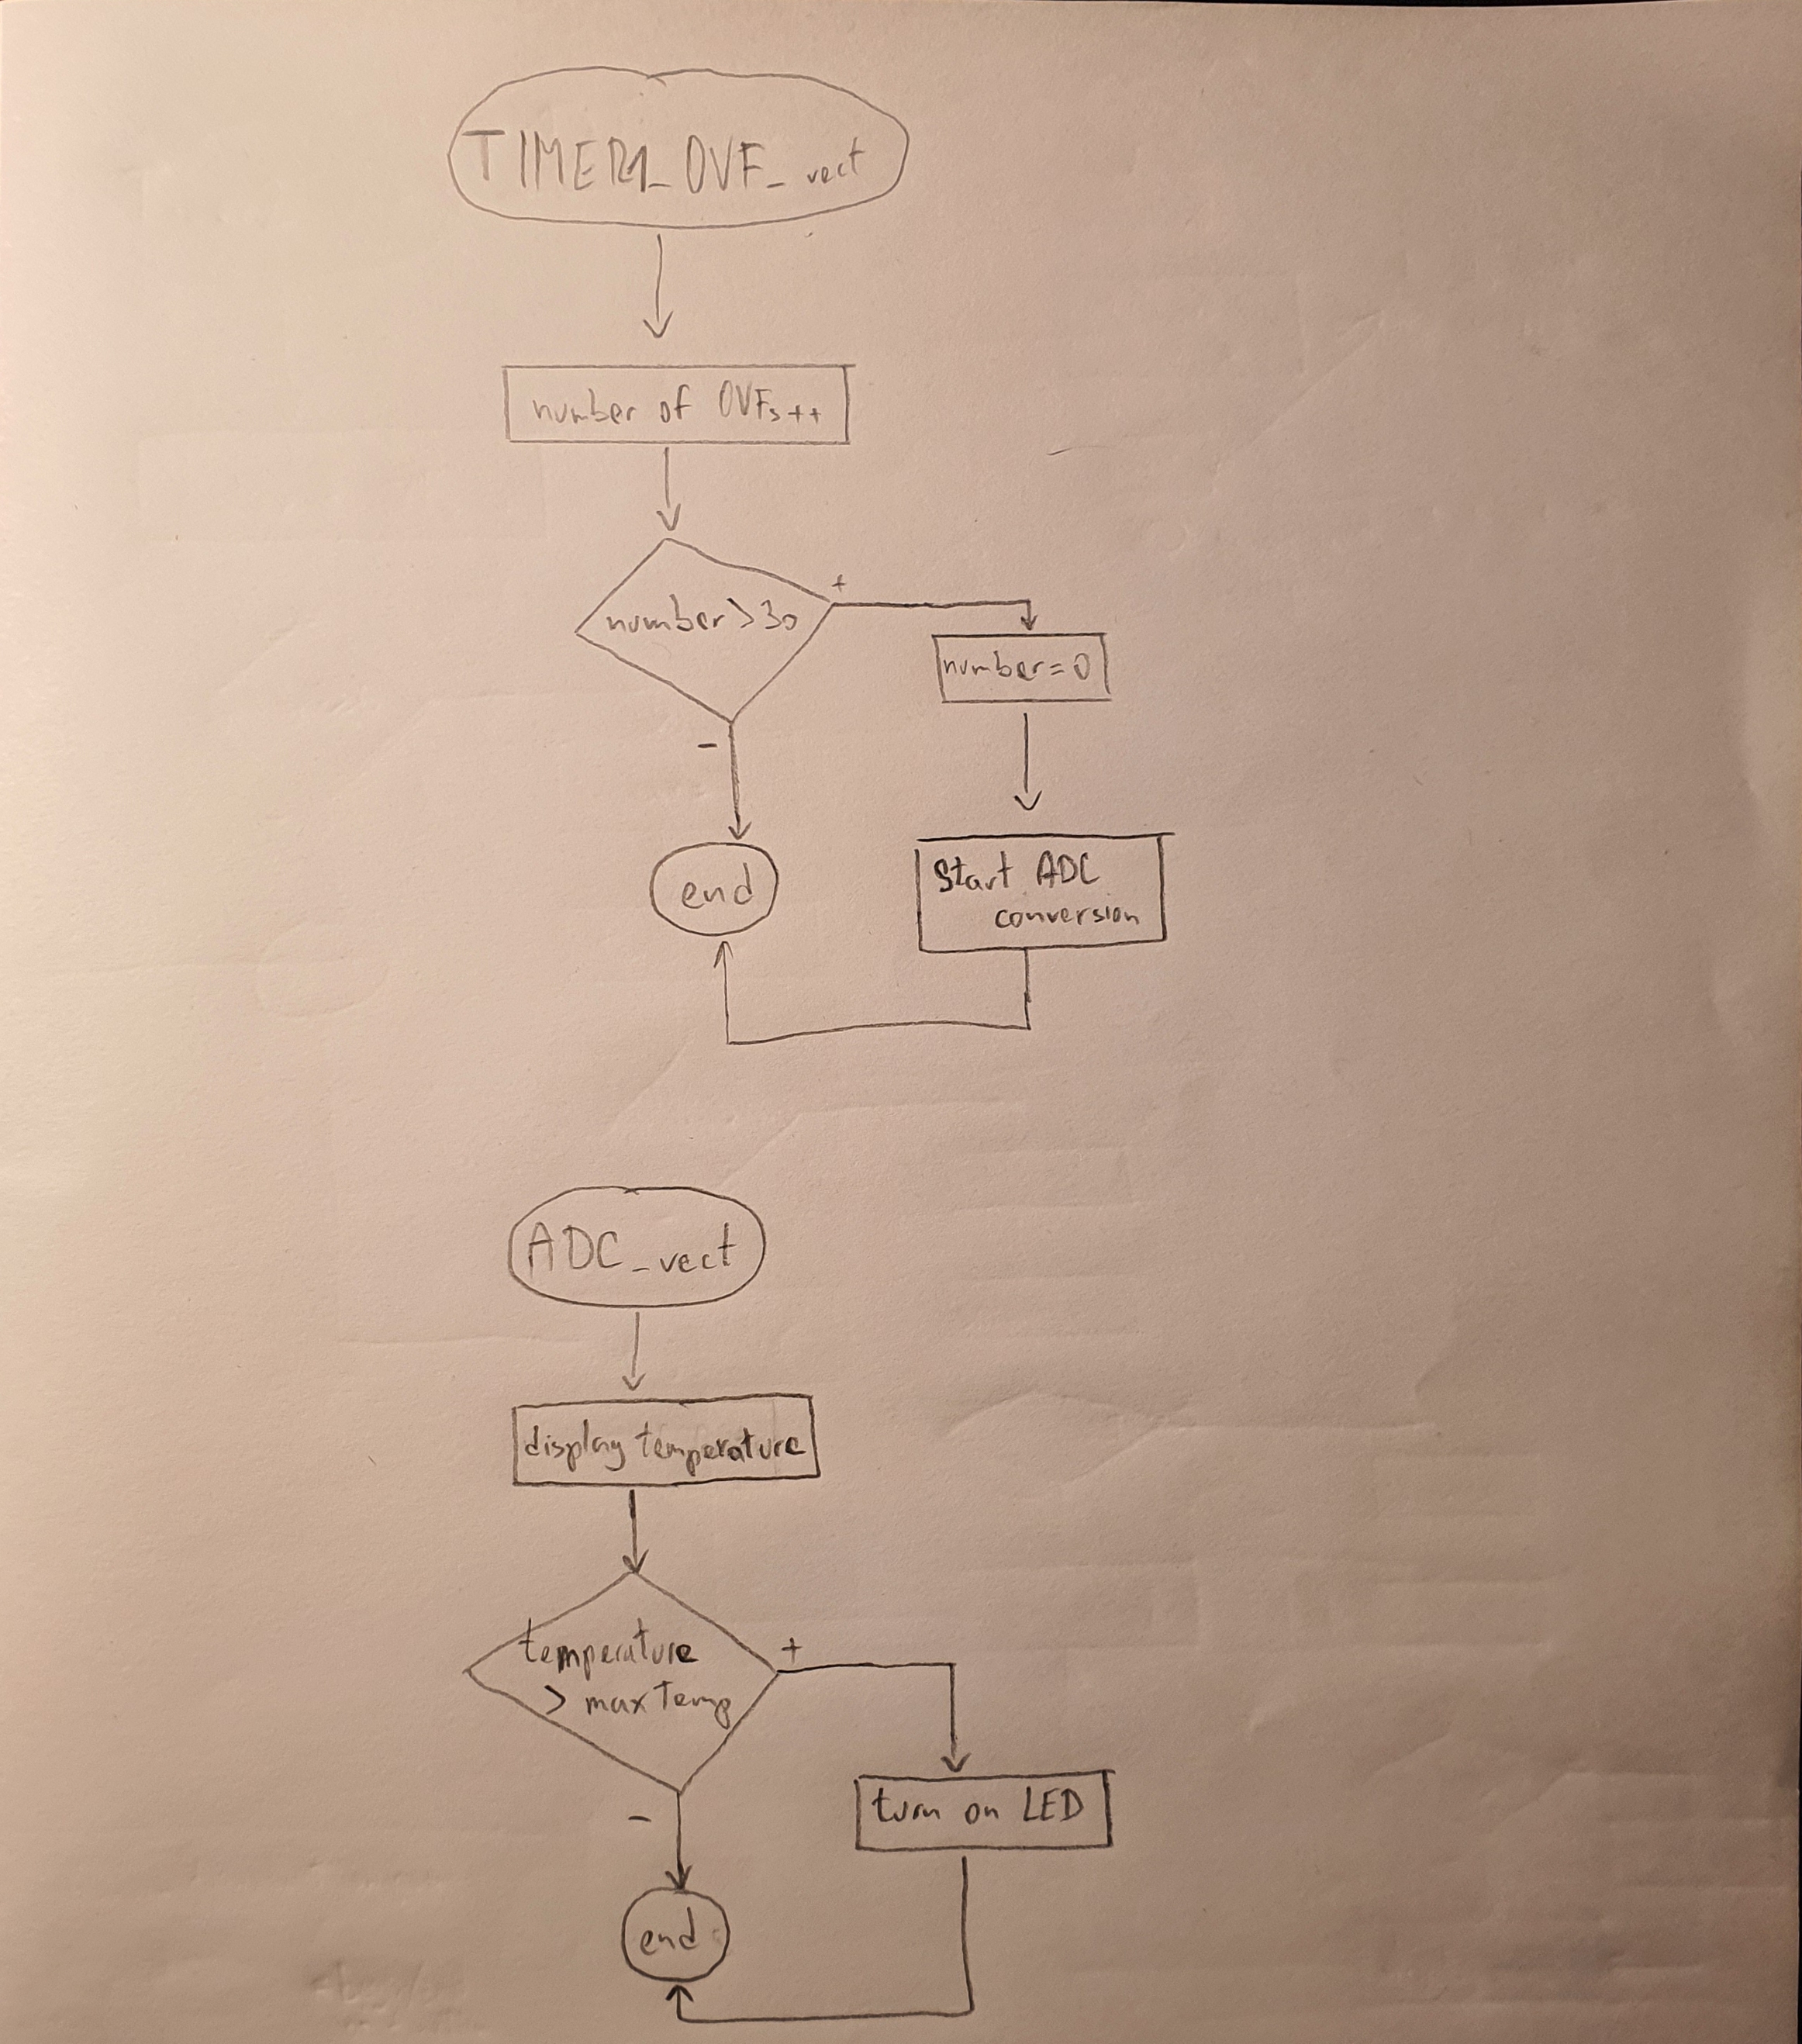 TIMER1_OVF_vect
number of OVFs++
number>30
+
number=0
-
end
Start ADC
conversion
ADC_vect
display temperature
temperature
> maxTemp
+
turn on LED
-
end